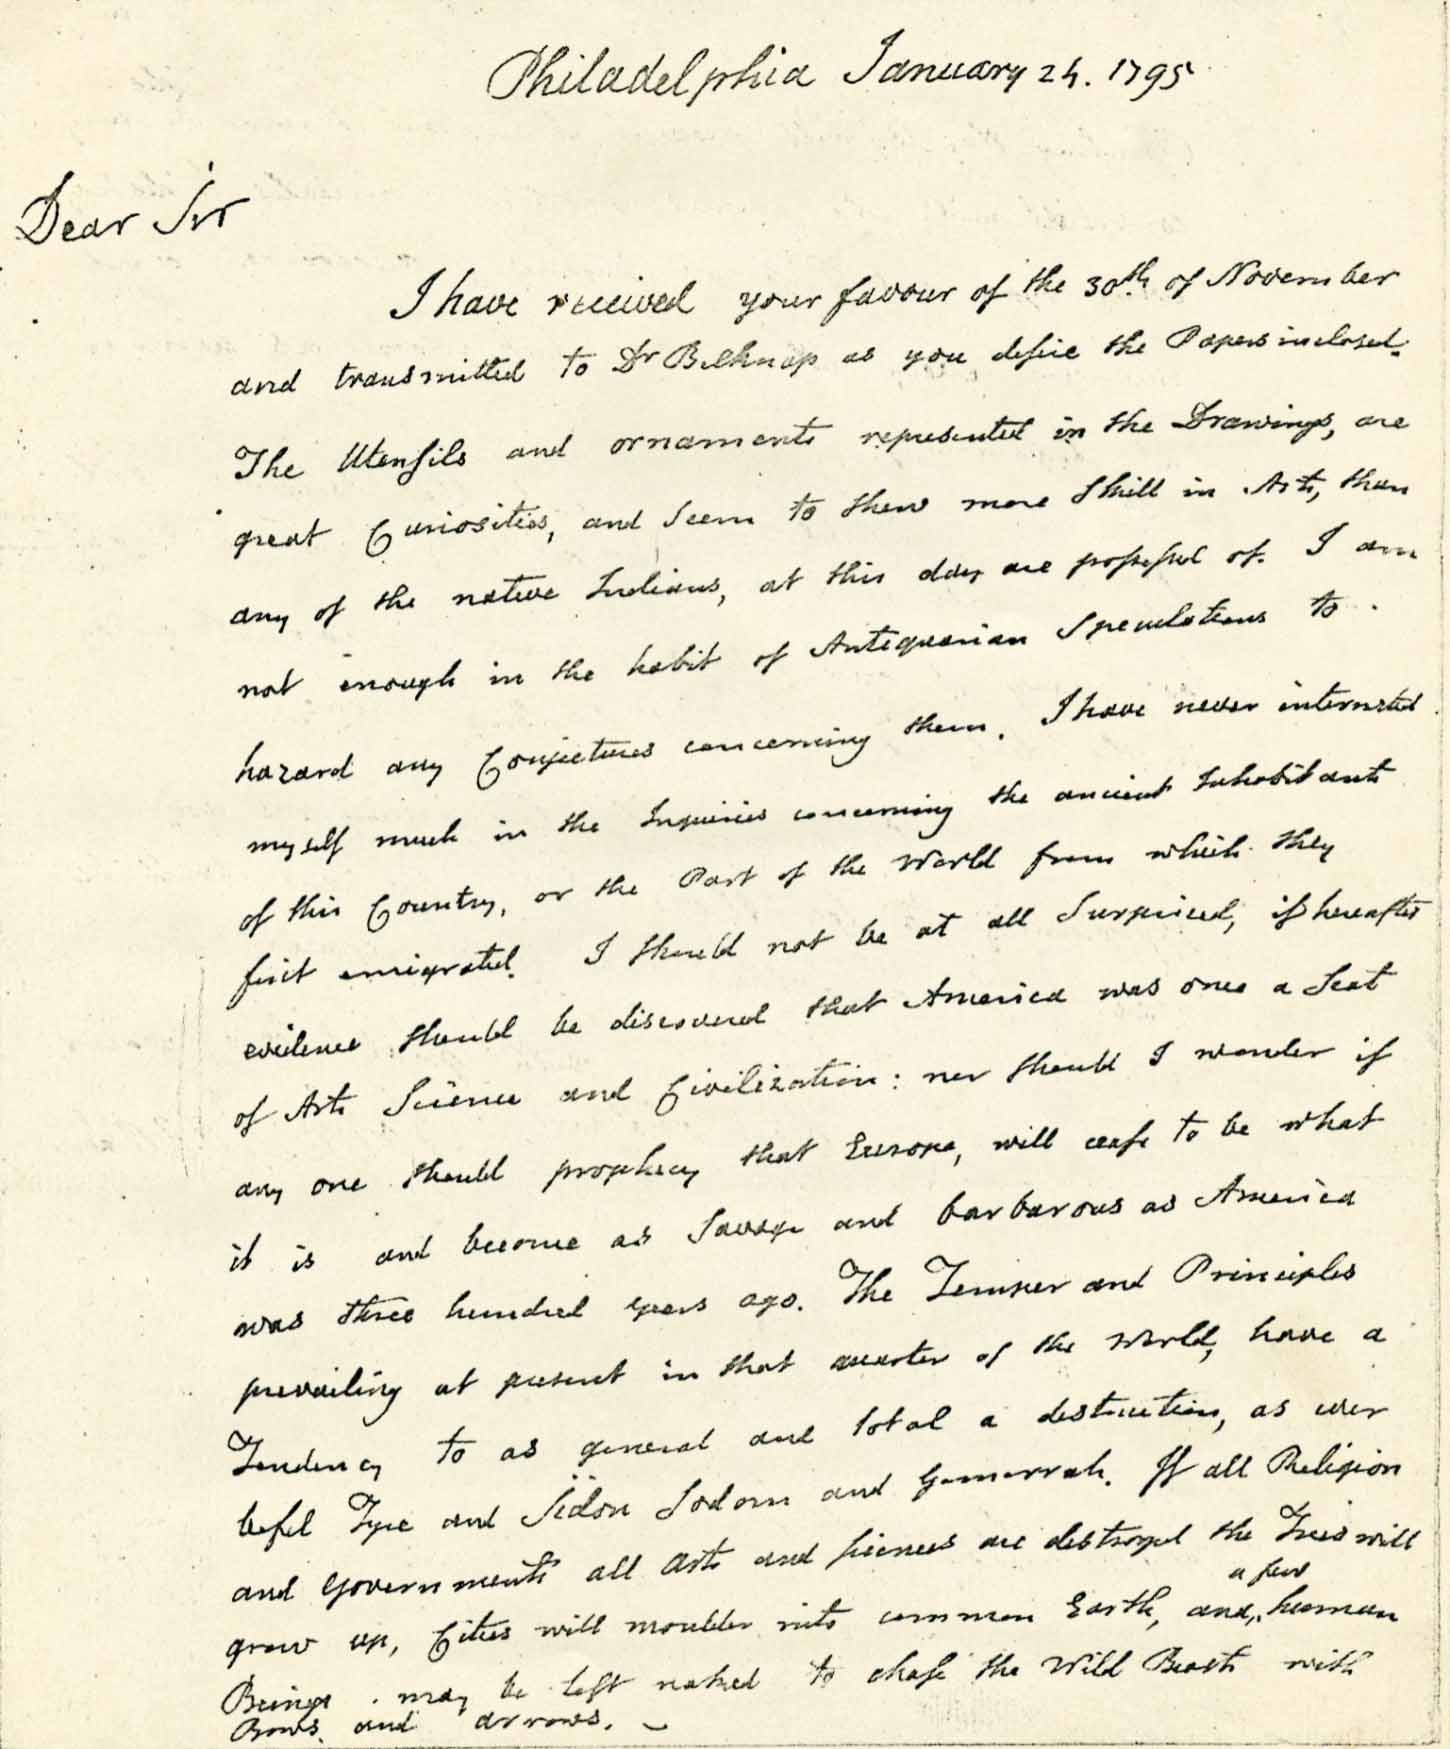 Philadelphia January 24. 1795
Dear Sir
I have received your favour of the 30th of November
and transmitted to Dr Belknap as you desire the Papers inclosed.
The Utensils and ornaments represented in the Drawings, are
great Curiosities, and seem to shew more Skill in Arts, than
any of the native Indians, at this day are possessed of. I am
not enough in the habit of Antiquarian Speculations to
hazard any Conjectures concerning them. I have never interested
myself much in the Inquiries concerning the ancient Inhabitants
of this Country, or the Part of the World from which they
first emigrated. I should not be at all Surprised, if hereafter
evidence should be discovered that America was once a Seat
of Arts Science and Civilization: nor should I wonder if
any one should prophecy that Europe, will cease to be what
it is and become as Savage and barbarous as America
was three hundred years ago. The Temper and Principles
prevailing at present in that quarter of the World, have a
Tendency to as general and total a destruction, as ever
befel Tyre and Sidon Sodom and Gomorrah. If all Religion
and Governments all Arts and Sciences are destroyed the Trees will
grow up, Cities will moulder into common Earth, and a few human
Beings may be left naked to chase the Wild Beasts with
Bows and arrows.